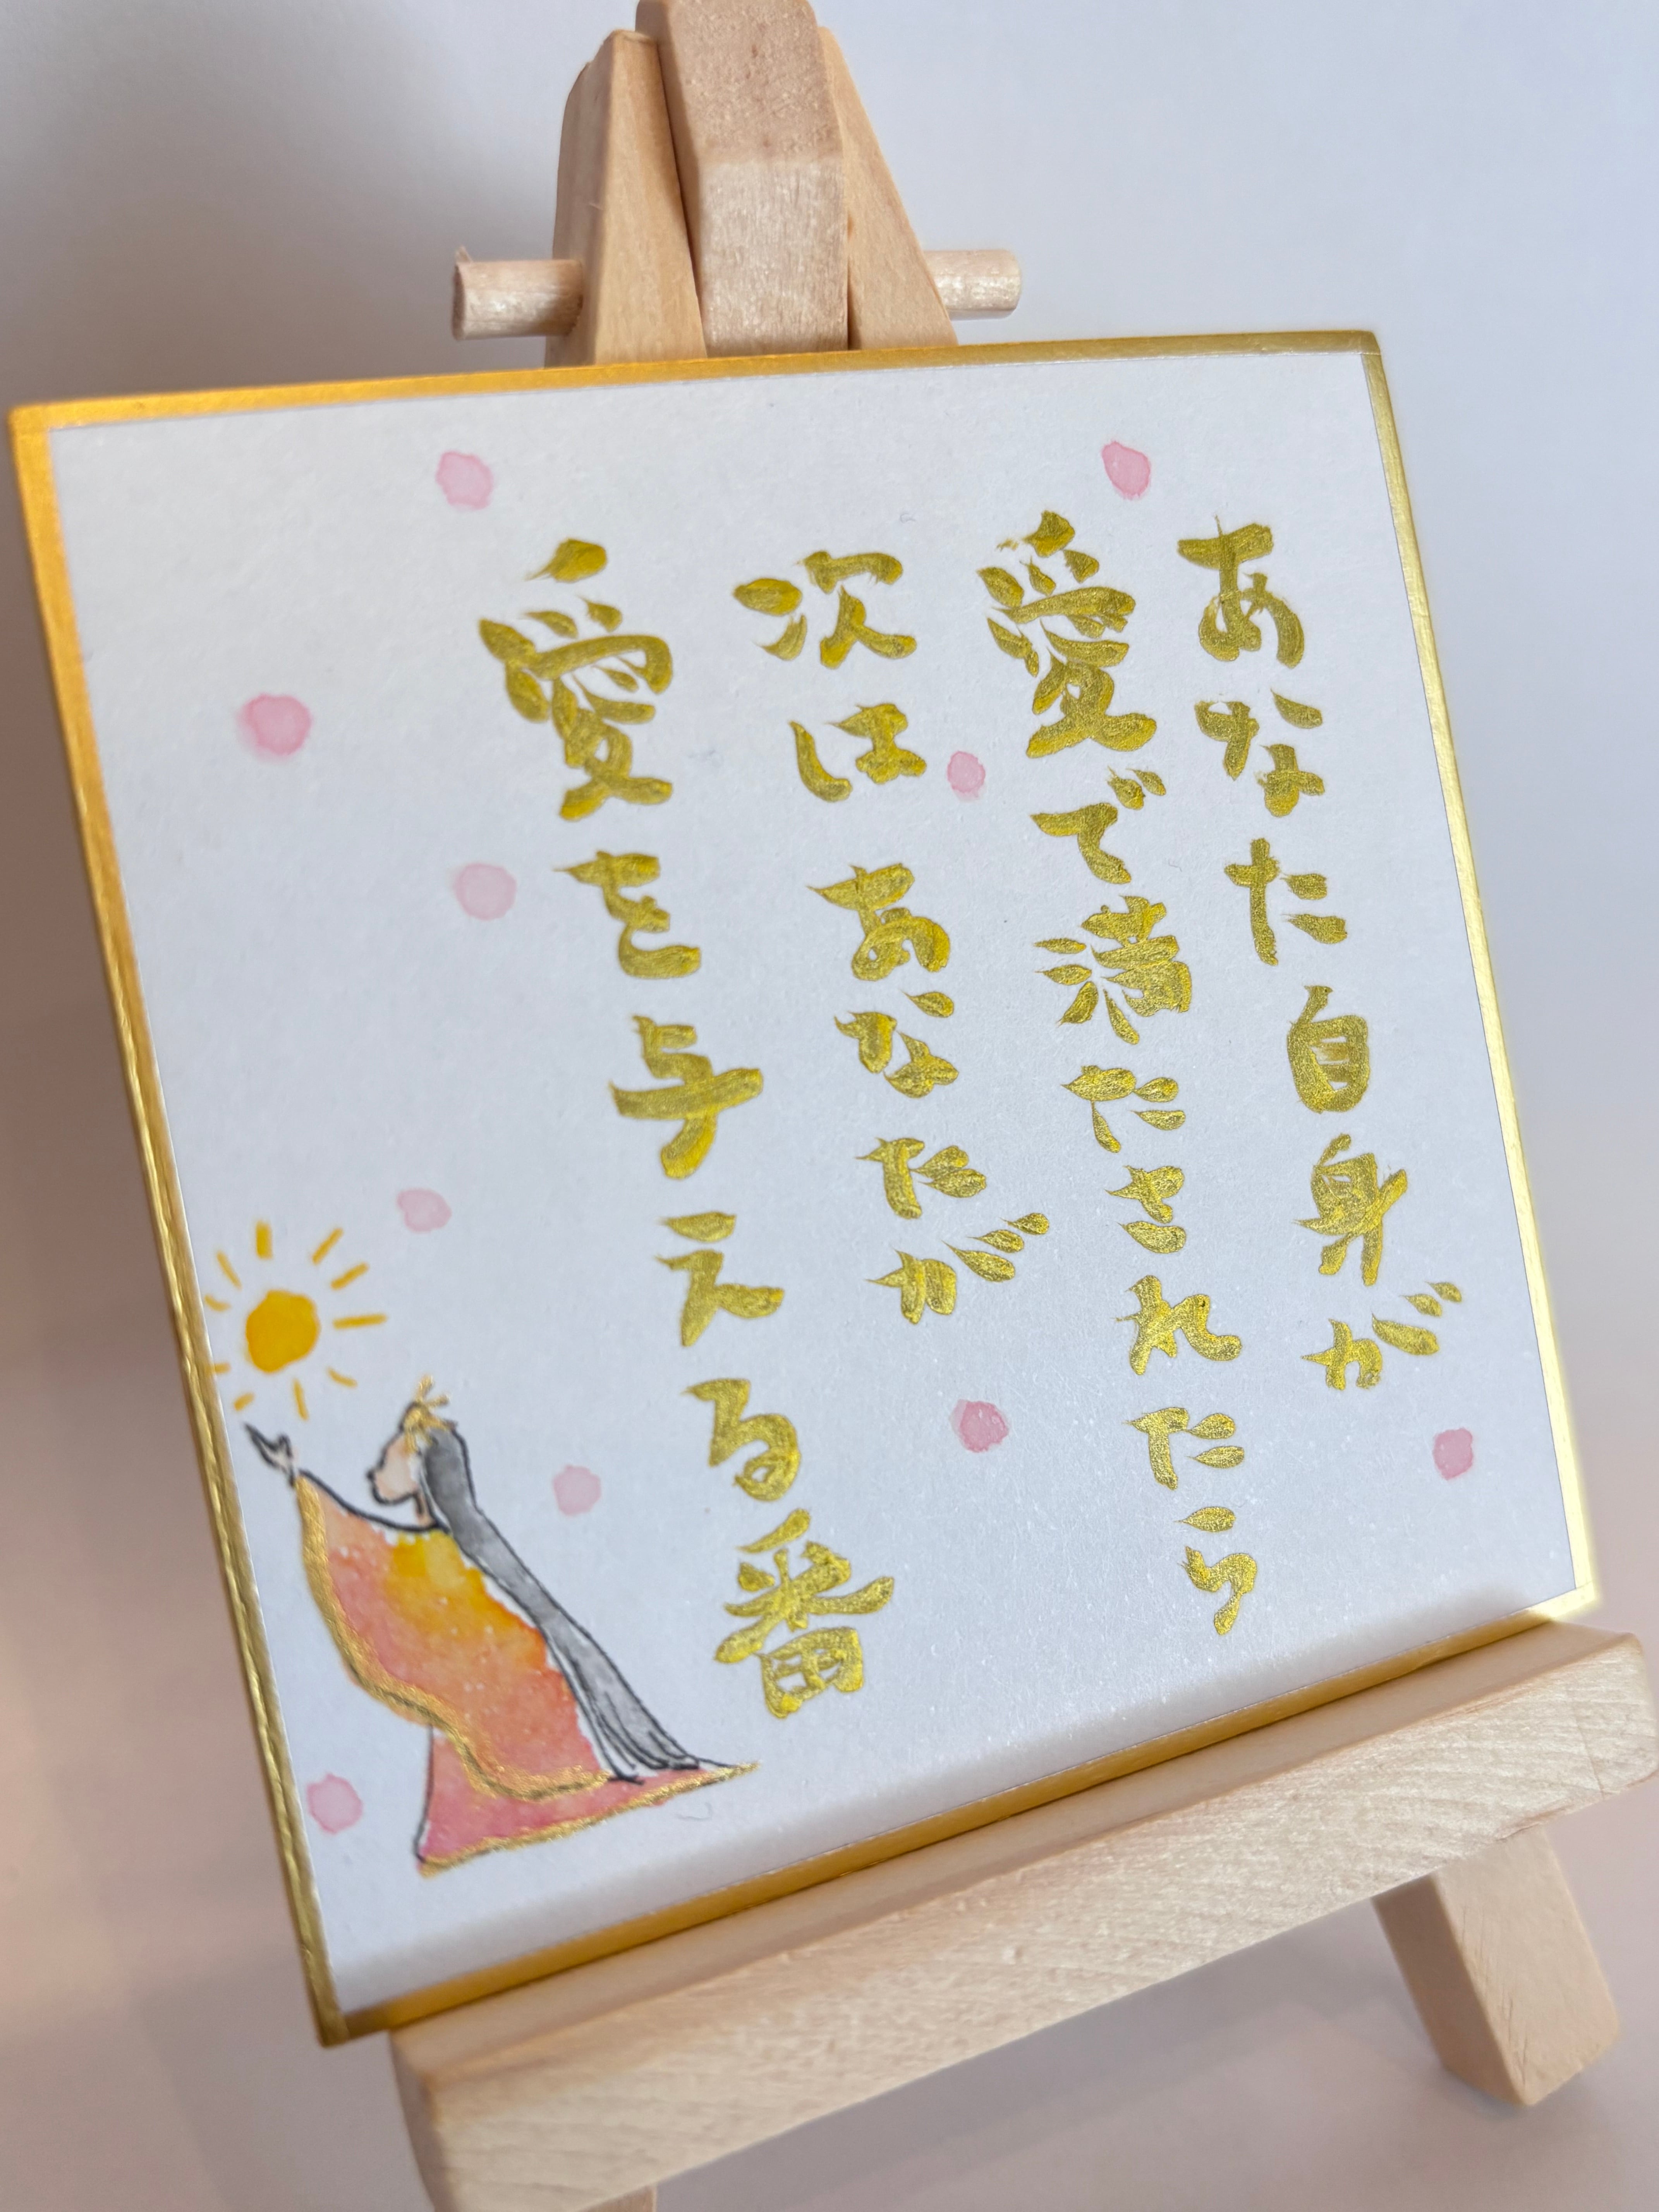 あなた自身が
愛で満たされたら
次はあなたが
愛を与える番